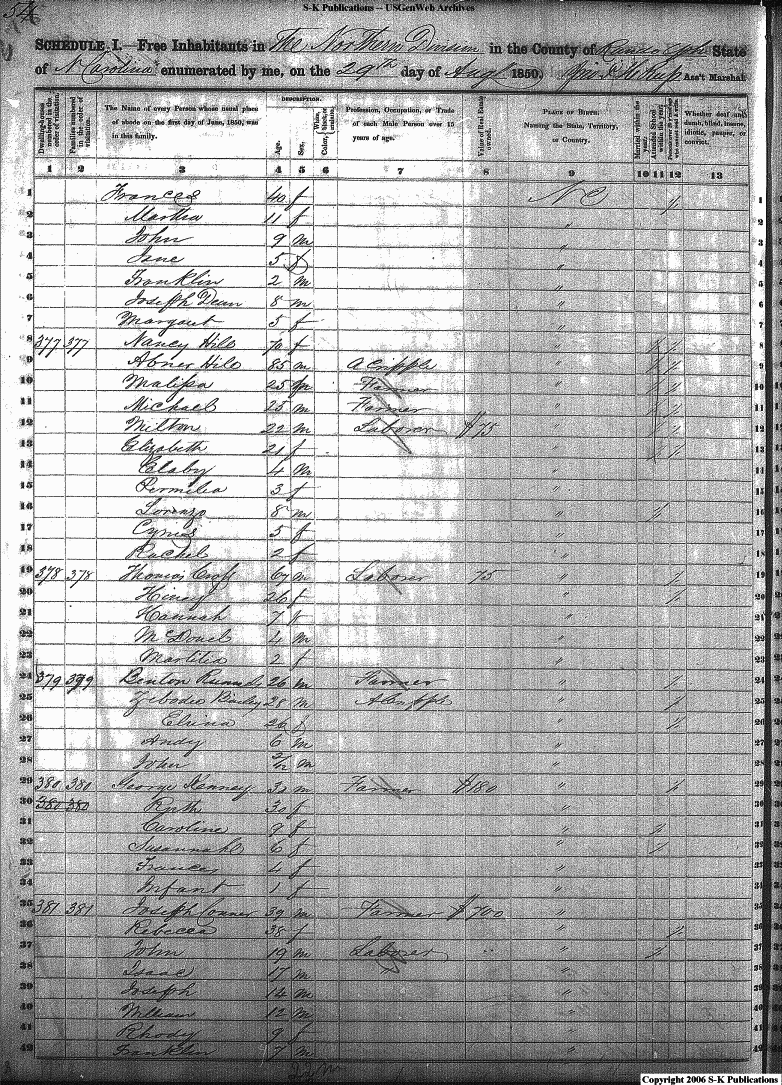 S-K Publications -- USGenWeb Archives
54
SCHEDULE I.—Free Inhabitants in The Northern Division in the County of Randolph State
of N Carolina enumerated by me, on the 29th day of Augt 1850. Ass't Marshal.
Dwelling-houses numbered in the order of visitation.
Families numbered in the order of visitation.
The Name of every Person whose usual place of abode on the first day of June, 1850, was in this family.
DESCRIPTION.
Age.
Sex.
White, black, or mulatto.
Color,
Profession, Occupation, or Trade of each Male Person over 15 years of age.
Value of Real Estate owned.
PLACE OF BIRTH.
Naming the State, Territory, or Country.
Married within the year.
Attended School within the year.
Whether deaf and dumb, blind, insane, idiotic, pauper, or convict.
1 2 3 4 5 6 7 8 9 10 11 12 13
1 Frances 40 f N C / 1
2 Martha 11 f " 2
3 John 9 m " 3
4 Jane 5 f " 4
5 Franklin 2 m " 5
6 Joseph Dean 8 m " 6
7 Margaret 5 f " 7
8 377 377 Nancy Hilo 70 f " 8
9 Abner Hilo 85 m A Cripple " 9
10 Malissa 25 Farmer " 10
11 Michael 25 m Farmer " 11
12 Milton 22 m Laborer $75 " 12
13 Elizabeth 21 f " 13
14 Claby 4 m " 14
15 Permelia 3 f " 15
16 Lorenzo 8 m " 16
17 Cyrus 5 f " 17
18 Rachel 2 f " 18
19 378 378 Thomas 67 m Laborer 75 " 19
20 26 f " 20
21 Hannah 7 f " 21
22 4 m " 22
23 Martitia 2 f " 23
24 379 399 Benton 26 m Farmer " 24
25 Zebedee 28 m A Cripple " 25
26 Elvina 26 f " 26
27 Andy 6 m " 27
28 John m " 28
29 380 380 George Kenney 32 m Farmer $180 " 29
30 380 380 Ruth 30 f " 30
31 Caroline 9 f " 31
32 Susannah 6 f " 32
33 Frances 4 f " 33
34 Infant 1 f " 34
35 381 381 Joseph Conner 39 m Farmer $700 " 35
36 Rebecca 38 f " 36
37 John 19 m Laborer " 37
38 Isaac 17 m " 38
39 Joseph 14 m " 39
40 William 12 m " 40
41 Rhody 9 f " 41
42 Franklin 7 m " 42
22 m
Copyright 2006 S-K Publications